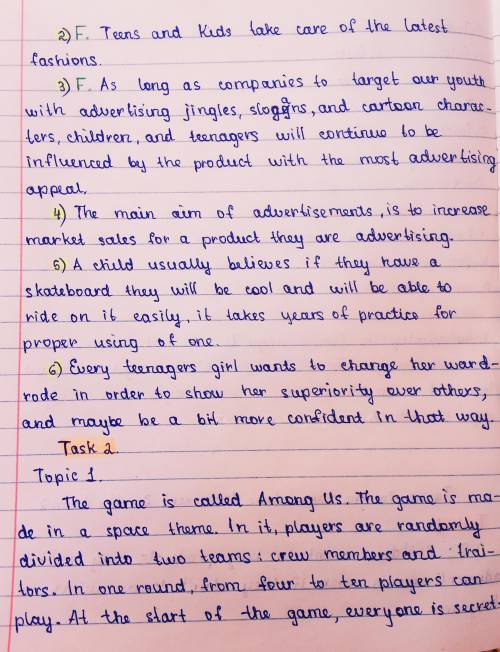 2) F. Teens and Kids take care of the latest
fashions.
3) F. As long as companies to target our youth
with advertising jingles, slogans, and cartoon charac-
ters, children, and teenagers will continue to be
influenced by the product with the most advertising
appeal.
4) The main aim of advertisements, is to increase
market sales for a product they are advertising.
5) A child usually believes if they have a
skateboard they will be cool and will be able to
ride on it easily, it takes years of practice for
proper using of one.
6) Every teenagers girl wants to change her ward-
rode in order to show her superiority over others,
and maybe be a bit more confident in that way.
Task 2.
Topic 1.
The game is called Among Us. The game is ma-
de in a space theme. In it, players are randomly
divided into two teams: crew members and trai-
tors. In one round, from four to ten players can
play. At the start of the game, everyone is secret-